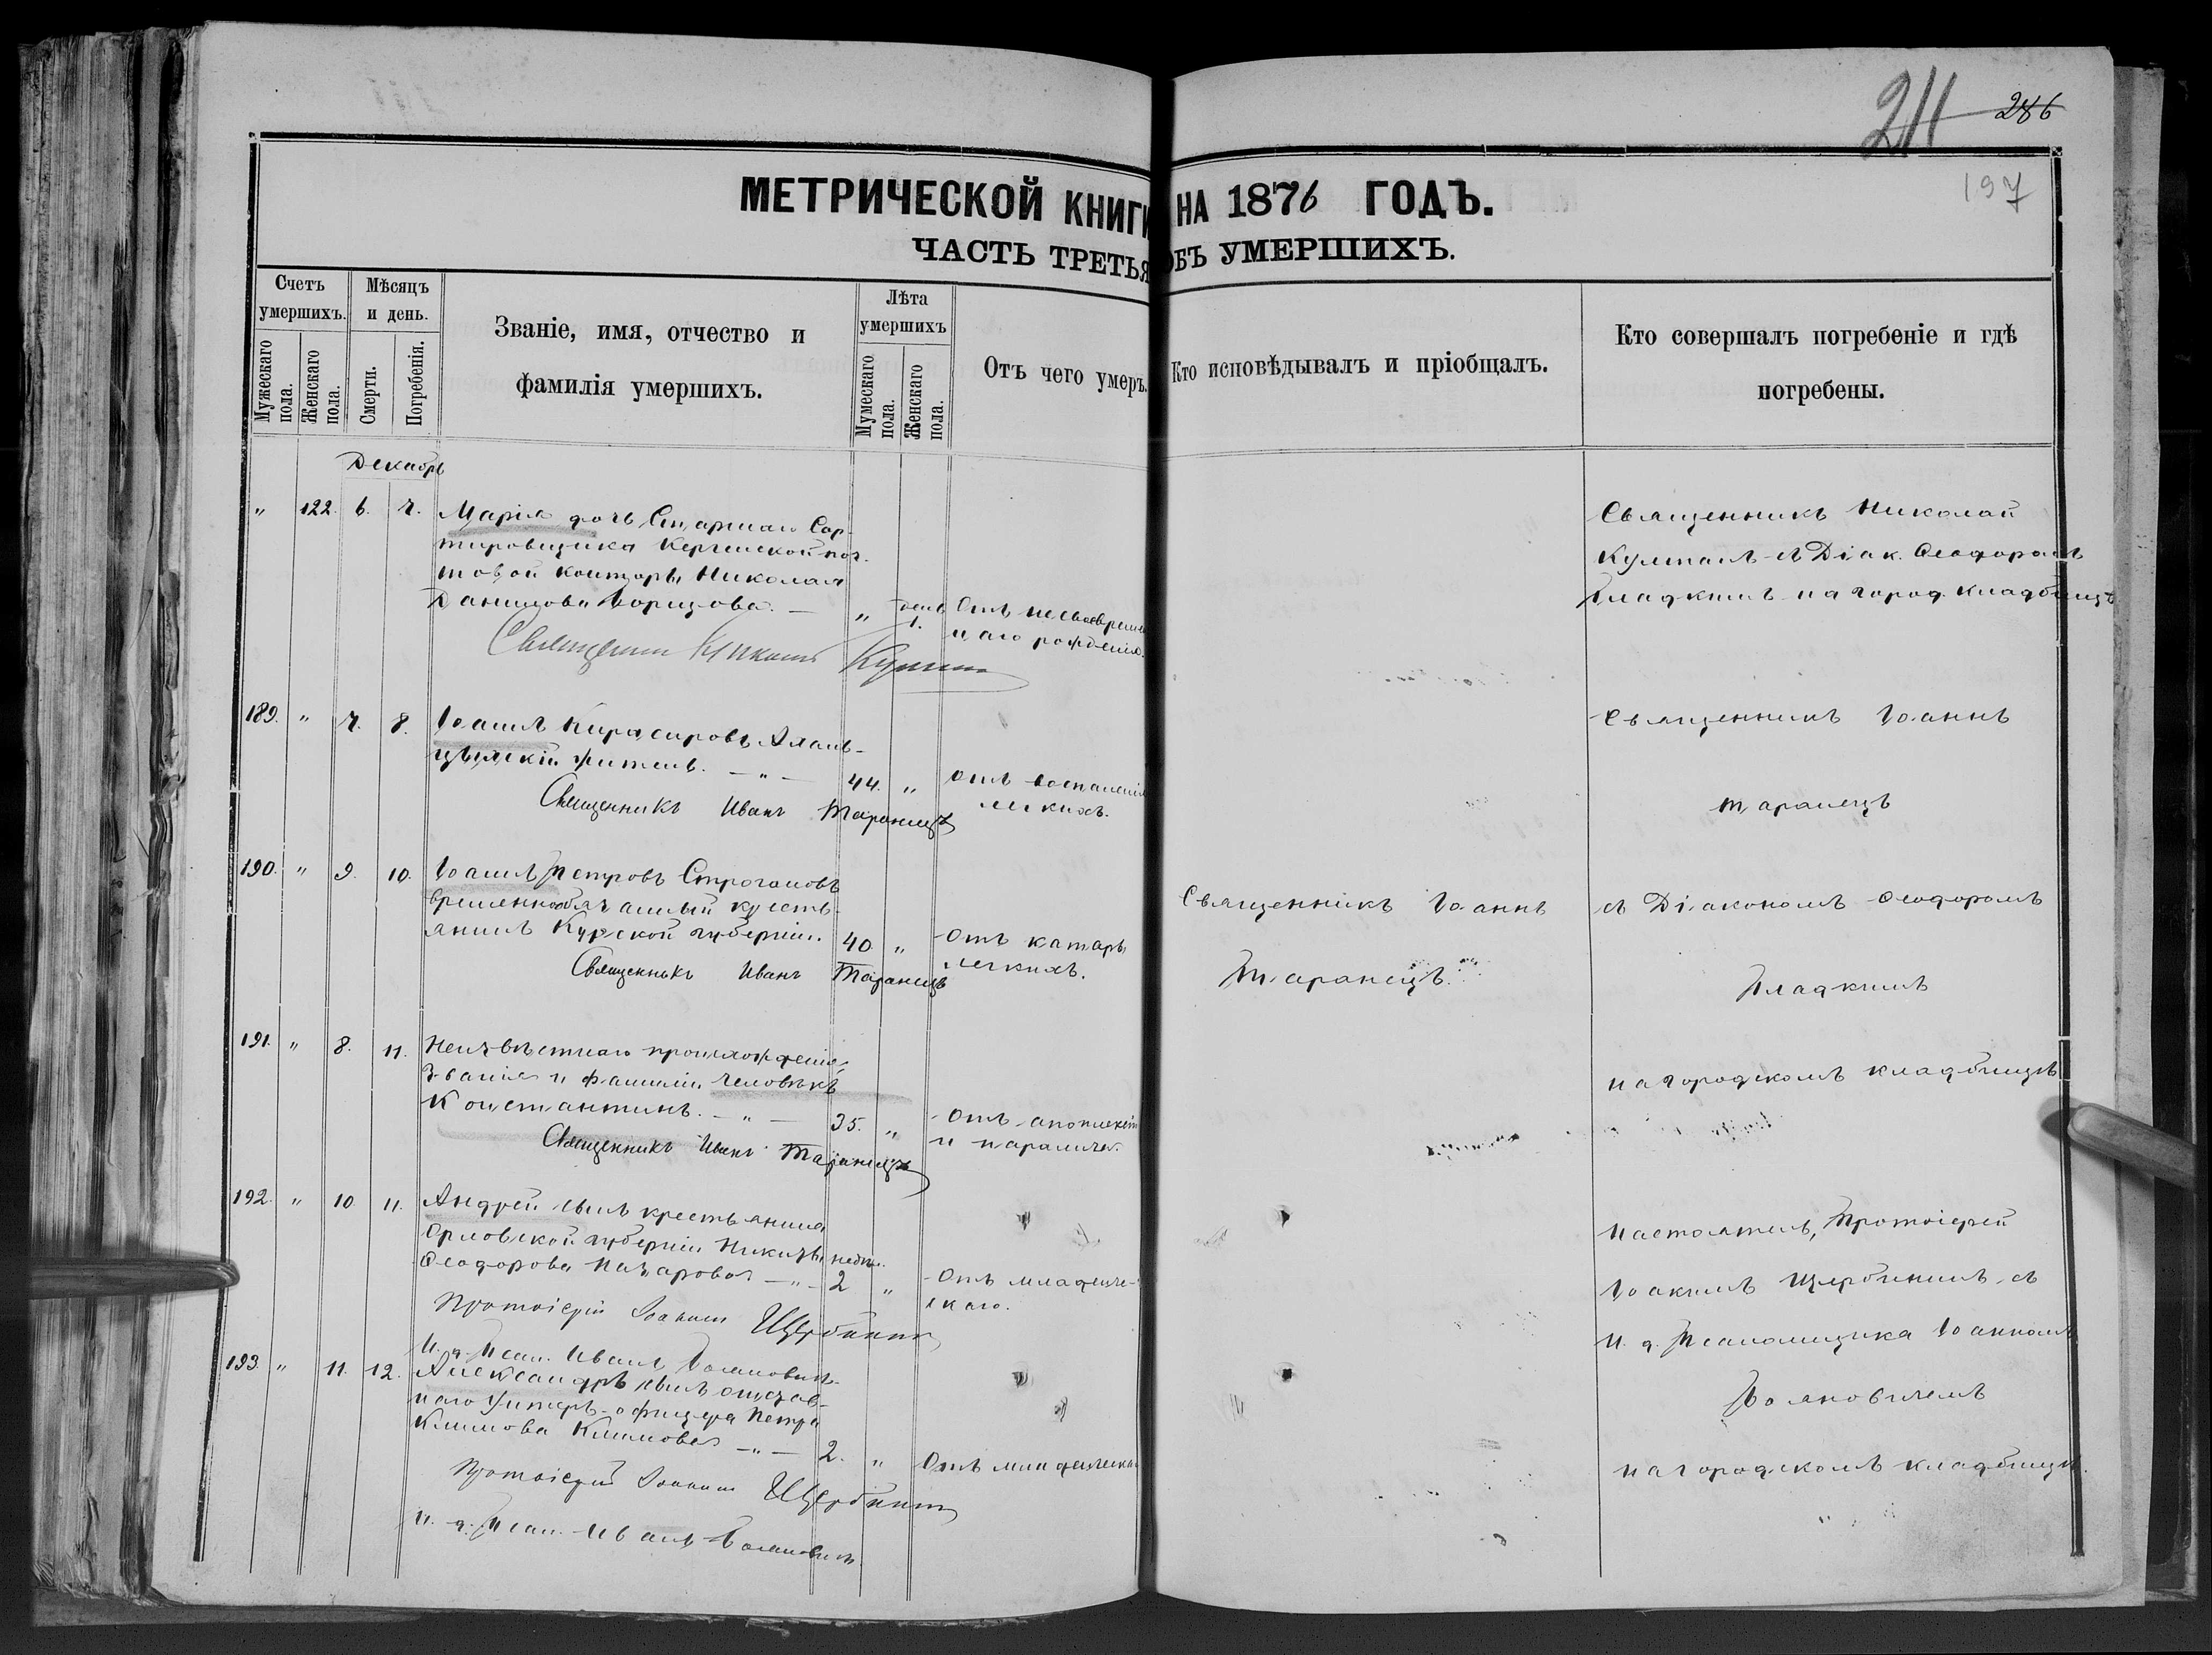 211 286
197
МЕТРИЧЕСКОЙ КНИГИ НА 1876 ГОДЪ.
ЧАСТЬ ТРЕТЬЯ ОБЪ УМЕРШИХЪ.
Счетъ умершихъ.
Мужескаго пола.
Женскаго пола.
Мѣсяцъ и день.
Смерти.
Погребенія.
Званіе, имя, отчество и
фамилія умершихъ.
Лѣта умершихъ
Мумескаго пола.
Женскаго пола.
Отъ чего умеръ.
Кто исповѣдывалъ и пріобщалъ.
Кто совершалъ погребеніе и гдѣ
погребены.
Декабрь
" 122. 6. 7. Марія дочь Старшаго Сор-
тировщика Керченской поч-
товой конторы Николая
Данилова Борцова. — " день 1. Отъ несвоевремен
наго рожденія.
Священникъ Николай
Священникъ Николай
съ Діак. Ѳеодоромъ
Гладкимъ на город. кладбищѣ
189. " 7. 8. Іоаннъ Кирасировъ
житель. — " — 44. " Отъ воспаленія
легкихъ.
Священникъ Иванъ Таранецъ
Священникъ Іоаннъ
Таранецъ
190. " 9. 10. Іоаннъ Петровъ Строгановъ
временнообязанный кресть-
янинъ Курской губерніи. 40. " Отъ катара
легкихъ.
Священникъ Иванъ Таранецъ
Священникъ Іоаннъ
Таранецъ.
съ Діакономъ Ѳеодоромъ
Гладкимъ
191. " 8. 11. Неизвѣстнаго происхожденія,
званія и фамиліи человѣкъ
Константинъ. — " — 35. " Отъ апоплексіи
и паралича.
Священникъ Иванъ Таранецъ
на городскомъ кладбищѣ
192. " 10. 11. Андрей сынъ крестьянина
Орловской губерніи Никиты
Ѳеодорова Назарова — " — недѣл. 2 " Отъ младенче-
скаго.
Протоіерей Іоакимъ Щербининъ
И. д. Псал. Иванъ Болановичъ
Настоятель, Протоіерей
Іоакимъ Щербининъ съ
И. д. Псаломщика Іоанномъ
193. " 11. 12. Александръ сынъ отстав-
наго Унтеръ-офицера Петра
Климова Климова — " — 2. " Отъ младенческа
Протоіерей Іоакимъ Щербининъ
И. д. Псал. Иванъ Болановичъ
Болановичемъ
на городскомъ кладбищѣ.